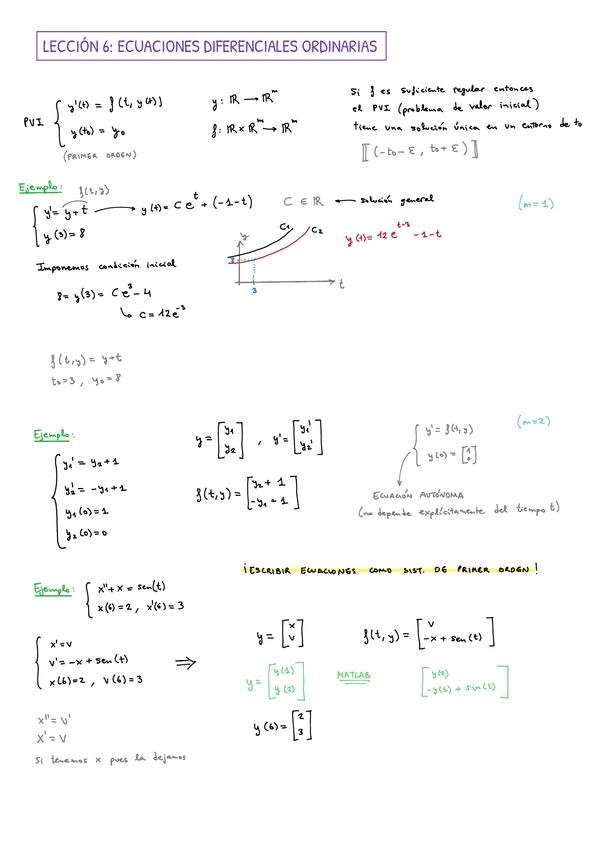 LECCIÓN 6: ECUACIONES DIFERENCIALES ORDINARIAS
PVI { y'(t) = f(t, y(t))
y(t0) = y0
(PRIMER ORDEN)
y: ℝ → ℝ^m
f: ℝ × ℝ^m → ℝ^m
Si f es suficiente regular entonces
el PVI (problema de valor inicial)
tiene una solución única en un entorno de t0
[[ (-t0-ε, t0+ε) ]]
Ejemplo: f(t,y)
{ y' = y+t → y(t) = C e^t + (-1-t) C ∈ ℝ ← solución general (m=1)
y(3) = 8
y C1 C2
8
3 t
y(t) = 12 e^{t-3} -1-t
Imponemos condición inicial
8 = y(3) = C e^3 - 4
↳ C = 12 e^{-3}
f(t,y) = y+t
t0=3, y0=8
Ejemplo:
{ y1' = y2 + 1
y2' = -y1 + 1
y1(0) = 1
y2(0) = 0
y = [y1; y2], y' = [y1'; y2']
f(t,y) = [y2 + 1; -y1 + 1]
{ y' = f(t,y)
y(0) = [1; 0]
(m=2)
ECUACIÓN AUTÓNOMA
(no depende explícitamente del tiempo t)
¡ESCRIBIR ECUACIONES COMO SIST. DE PRIMER ORDEN!
Ejemplo: { x'' + x = sen(t)
x(6) = 2, x'(6) = 3
{ x' = v
v' = -x + sen(t)
x(6) = 2, v(6) = 3
⇒ y = [x; v] f(t,y) = [v; -x + sen(t)]
y = [y(1); y(2)] MATLAB [y(2); -y(1) + sin(t)]
y(6) = [2; 3]
x'' = v'
x' = v
Si tenemos x pues la dejamos